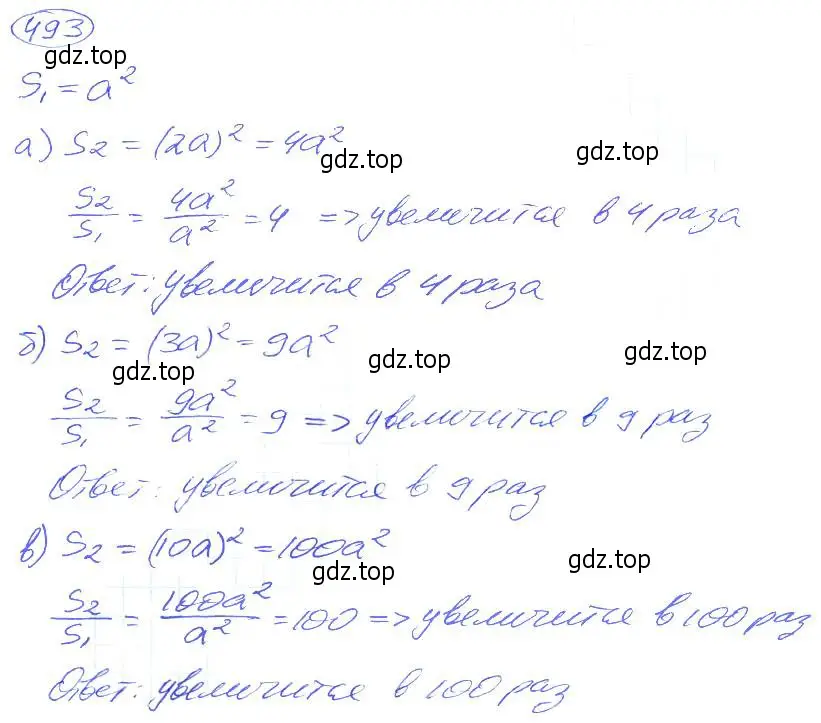 493
gdz.top
S₁ = a²
а) S₂ = (2a)² = 4a²
gdz.top gdz.top
S₂/S₁ = 4a²/a² = 4 => увеличится в 4 раза
Ответ: увеличится в 4 раза
б) S₂ = (3a)² = 9a²
gdz.top gdz.top gdz.top
S₂/S₁ = 9a²/a² = 9 => увеличится в 9 раз
Ответ: увеличится в 9 раз
в) S₂ = (10a)² = 100a²
gdz.top gdz.top
S₂/S₁ = 100a²/a² = 100 => увеличится в 100 раз
Ответ: увеличится в 100 раз